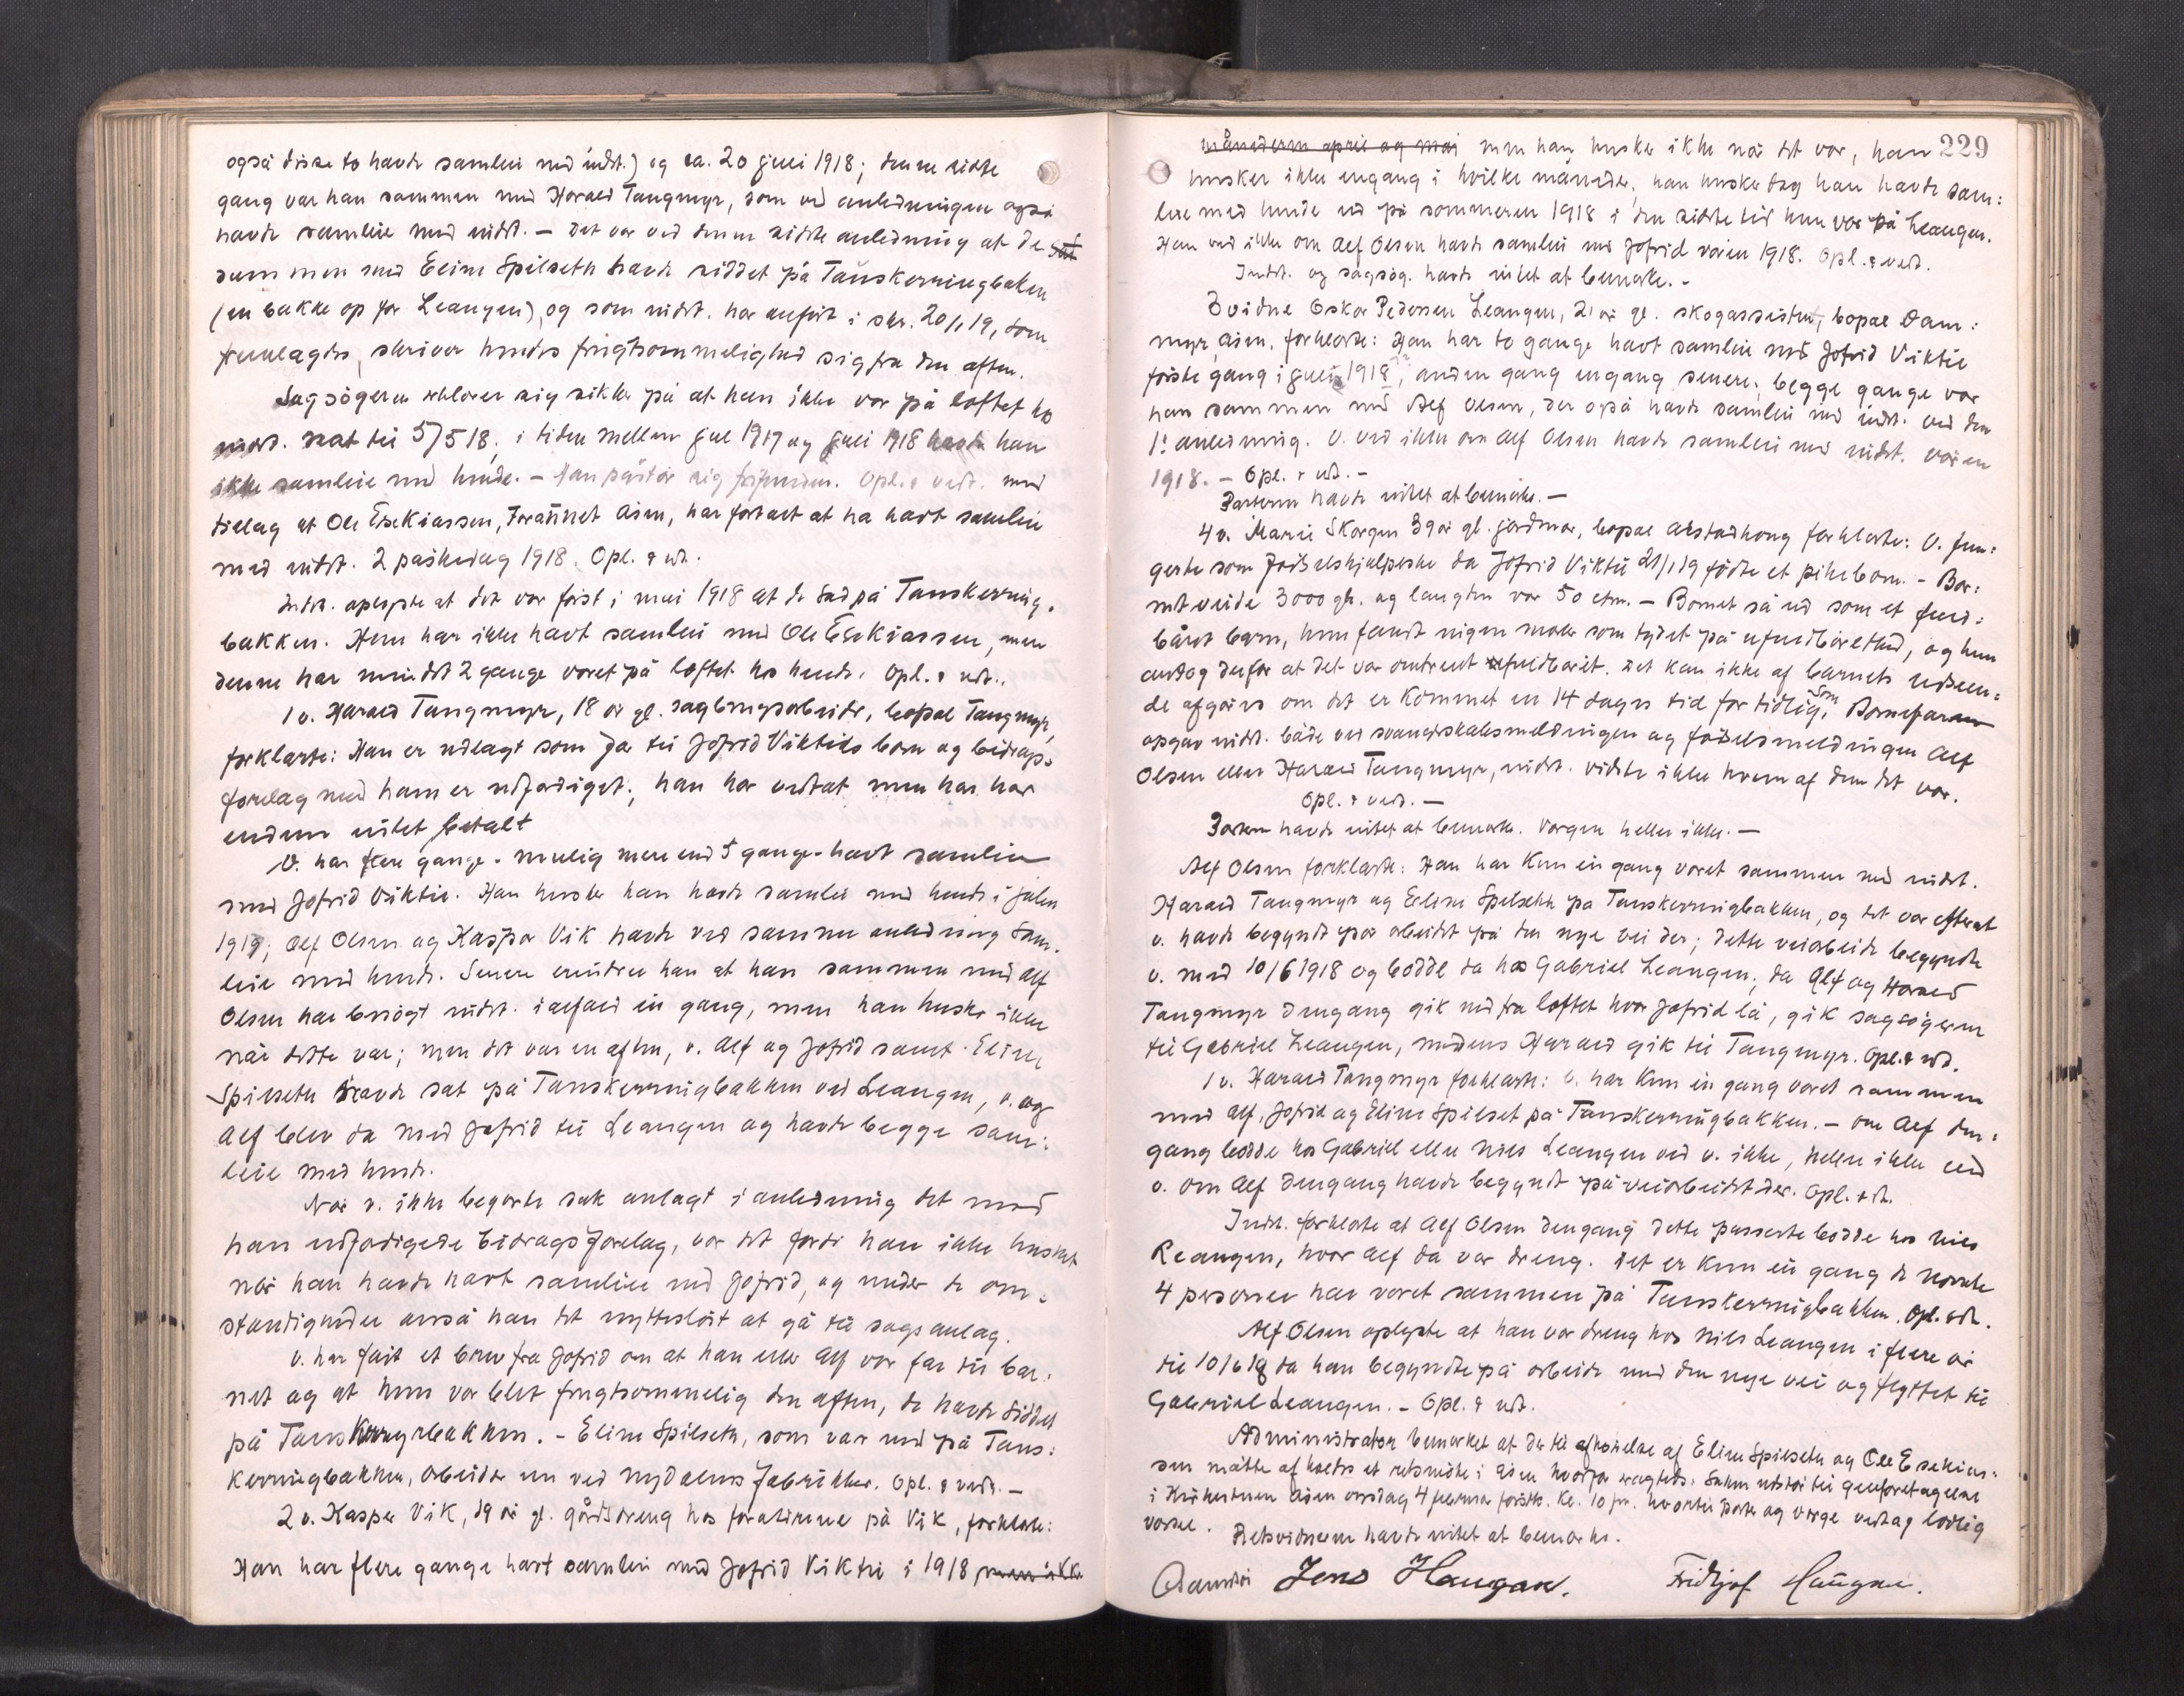 også disse to havde samleie med indst.) og ca. 20 juli 1918; denne sidste
gang var han sammen med Harald Tangmyr, som ved anledningen også
havde samleie med indst. — Det var ved denne sidste anledning at de
sammen med Eline Spilseth havde siddet på Tanskerringbaken
(en bakke op for Leangen), og som indst. har anført i skr. 20/1 19, som
fremlagdes, skriver hendes frugtsommelighed sig fra den aften.
Sagsøgeren erklærer sig sikker på at han ikke var på loftet hos
indst. nat til 5/5 18, i tiden mellem jul 1917 og juli 1918 havde han
ikke samleie med hende. — Han påstår sig frifunden. Opl. & vedt. med
tillæg at Ole Esekiassen, Aisen, har fortalt at ha havt samleie
med indst. 2 påskedag 1918. Opl. & vedt.
Indst. oplyste at det var først i mai 1918 at de sad på Tanskerring-
bakken. Hun har ikke havt samleie med Ole Esekiassen, men
denne har mindst 2 gange været på loftet hos hende. Opl. & vedt.
1 v. Harald Tangmyr, 18 år gl. sagbrugsarbeider, bopæl Tangmyr,
forklarte: Han er udlagt som far til Jofrid Viktils barn og bidrags-
forelæg mod ham er udfærdiget; han har vedtat men han har
endnu intet betalt
V. har flere gange - mulig mere end 5 gange - havt samleie
med Jofrid Viktil. Han husker han havde samleie med hende i julen
1917; Alf Olsen og Kaspar Vik havde ved samme anledning sam-
leie med hende. Senere erindrer han at han sammen med Alf
Olsen har besøgt indst. ialfald en gang, men han husker ikke
når dette var; men det var en aften, v. Alf og Jofrid samt Eline
Spilseth havde sat på Tanskerringbakken ved Leangen, v. og
Alf blev da med Jofrid til Leangen og havde begge sam-
leie med hende.
Når v. ikke begjærte sak anlagt i anledning det mod
han udfærdigede bidragsforelæg, var det fordi han ikke husket
når han havde havt samleie med Jofrid, og under de om-
stændigheder anså han det nytteløst at gå til sagsanlæg.
V. har fåit et brev fra Jofrid om at han eller Alf var far til bar-
net og at hun var blet frugtsommelig den aften, de havde siddet
på Tanskerringbakken. — Eline Spilseth, som var med på Tans-
kerringbakken, arbeider nu ved Nydalens Fabrikker. Opl. & vedt. —
2 v. Kasper Vik, 19 år gl. gårdsdreng hos forældrene på Vik, forklarte:
Han har flere gange havt samleie med Jofrid Viktil i 1918 men ikke
229
månederne april og mai men han husker ikke når det var, han
husker ikke engang i hvilke måneder, han husker dog han havde sam-
leie med hende ud på sommeren 1918 i den sidste tid hun var på Leangen.
Han ved ikke om Alf Olsen havde samleie med Jofrid våren 1918. Opl. & vedt.
Indst. og sagsøg. havde intet at bemerke. -
3 vidne Oskar Pedersen Leangen, 21 år gl. skogassistent, bopæl Dam-
myr, Aisen, forklarte: Han har to gange havt samleie med Jofrid Viktil
første gang i juli 1918, anden gang engang senere; begge gange var
han sammen med Alf Olsen, der også havde samleie med indst. ved den
1ste anledning. V. ved ikke om Alf Olsen havde samleie med indst. våren
1918. — Opl. & vedt. —
Parterne havde intet at bemerke. —
4 v. Marie Skorgen 39 år gl. jordmor, bopæl forklarte: V. fun-
gerte som fødselshjælperske da Jofrid Viktil 21/1 19 fødte et pikebarn. — Bar-
net veide 3000 gr. og længden var 50 ctm. — Barnet så ud som et fuld-
båret barn, hun fandt ingen merker som tydet på ufuldbårethed, og hun
antog derfor at det var omtrent fuldbåret. Det kan ikke af barnets udseen-
de afgjøres om det er kommet en 14 dages tid for tidlig. Som Barnefaren
opgav indst. både ved svangerskabsmeldingen og fødselsmeldingen Alf
Olsen eller Harald Tangmyr, indst. vidste ikke hvem af dem det var.
Opl. & vedt. —
Parterne havde intet at bemerke. Vergen heller ikke. —
Alf Olsen forklarte: Han har kun en gang været sammen med indst.
Harald Tangmyr og Eline Spilseth på Tanskerringbakken, og det var efterat
v. havde begyndt på arbeidet på den nye vei der; dette veiarbeide begyndte
v. med 10/6 1918 og bodde da hos Gabriel Leangen; da Alf og Harald
Tangmyr dengang gik ned fra loftet hvor Jofrid lå, gik sagsøgeren
til Gabriel Leangen, medens Harald gik til Tangmyr. Opl. & vedt.
1 v. Harald Tangmyr forklarte: V. har kun en gang været sammen
med Alf, Jofrid og Eline Spilset på Tanskerringbakken. — Om Alf den-
gang bodde hos Gabriel eller Nils Leangen ved v. ikke, heller ikke ved
v. om Alf dengang havde begyndt på veiarbeidet der. Opl. & vedt.
Indst. forklarte at Alf Olsen dengang dette passerte bodde hos Nils
Leangen, hvor Alf da var dreng. Det er kun en gang de nævnte
4 personer har været sammen på Tanskerringbakken. Opl. & vedt.
Alf Olsen oplyste at han var dreng hos Nils Leangen i flere år
til 10/6 18 da han begyndte på arbeide med den nye vei og flyttet til
Gabriel Leangen. — Opl. & vedt.
Administrator bemerket at der til afhørelse af Eline Spilseth og Ole Esekias-
sen måtte afholdes et retsmøte i Aisen hvorfor eragtedes: Saken utstår til gjenforetagelse
i Aisen onsdag 4 februar førstk. kl. 10 fm. hvortil parter og verge vedtag lovlig
varsel. Retsvidnerne havde intet at bemerke.
Jens Haugan. Fridtjof Haugan.